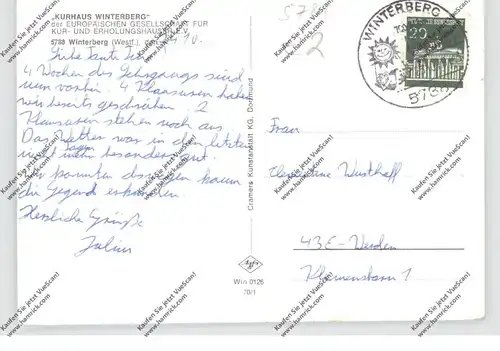 „KURHAUS WINTERBERG"
der EUROPÄISCHEN GESELLSCHAFT FÜR
KUR- UND ERHOLUNGSHÄUSER E.V.
5788 Winterberg (Westf.)
Liebe Tante
4 Wochen des Lehrgangs sind
nun vorbei. 4 Klausuren haben
wir bereits geschrieben. 2
Klausuren stehen noch aus.
Das Wetter war in den letzten
Tagen
nicht mehr besonders gut.
Wir konnten deswegen kaum
die Gegend erkunden.
Herzliche Grüße
Julius
Cramers Kunstanstalt KG, Dortmund
Agfa
Win 0126
70/1
WINTERBERG
5788
20
DEUTSCHE BUNDESPOST
Frau
Westhoff
43 E-Werden
Klemensborn 1
Kaufen Sie jetzt VueScan!
www.hamrick.com